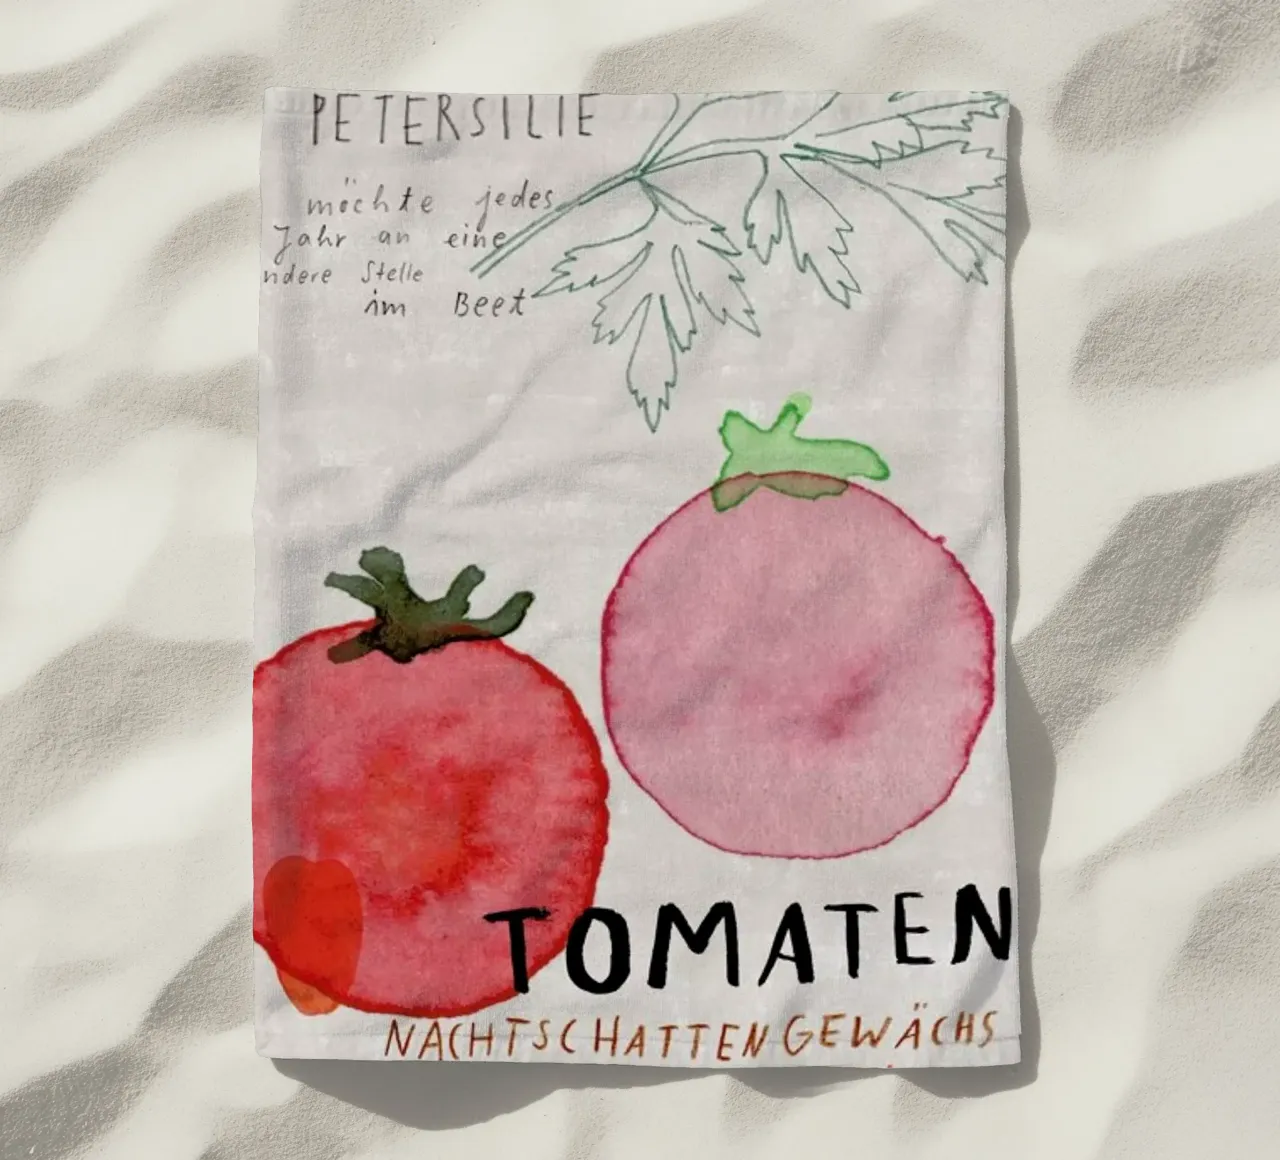 PETERSILIE
möchte jedes
Jahr an eine
ndere Stelle
im Beet
TOMATEN
NACHTSCHATTENGEWÄCHS